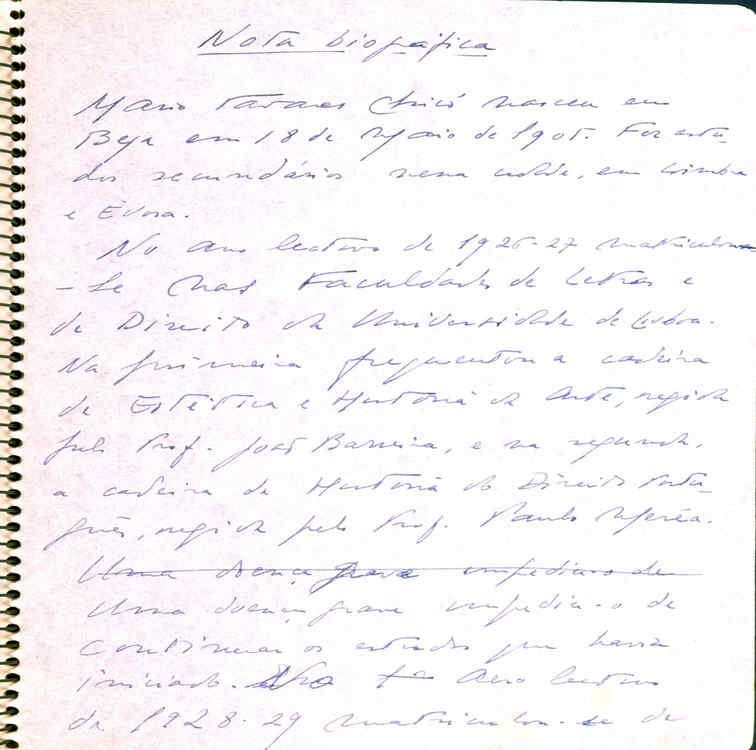 Nota biográfica
Mário Tavares Chicó nasceu em
Beja em 18 de Maio de 1905. Fez estu-
dos secundários nessa cidade, em Coimbra
e Évora.
No ano lectivo de 1926-27 matriculou-
-se nas Faculdades de Letras e
de Direito da Universidade de Lisboa.
Na primeira frequentou a cadeira
de Estética e História da Arte, regida
pelo Prof. João Barreira, e na segunda,
a cadeira de História do Direito Portu-
guês, regida pelo Prof. Paulo Merêa.
Uma doença grave impediu-o de
Uma doença grave impediu-o de
continuar os estudos que havia
iniciado. No Ano lectivo
de 1928-29 matriculou-se de